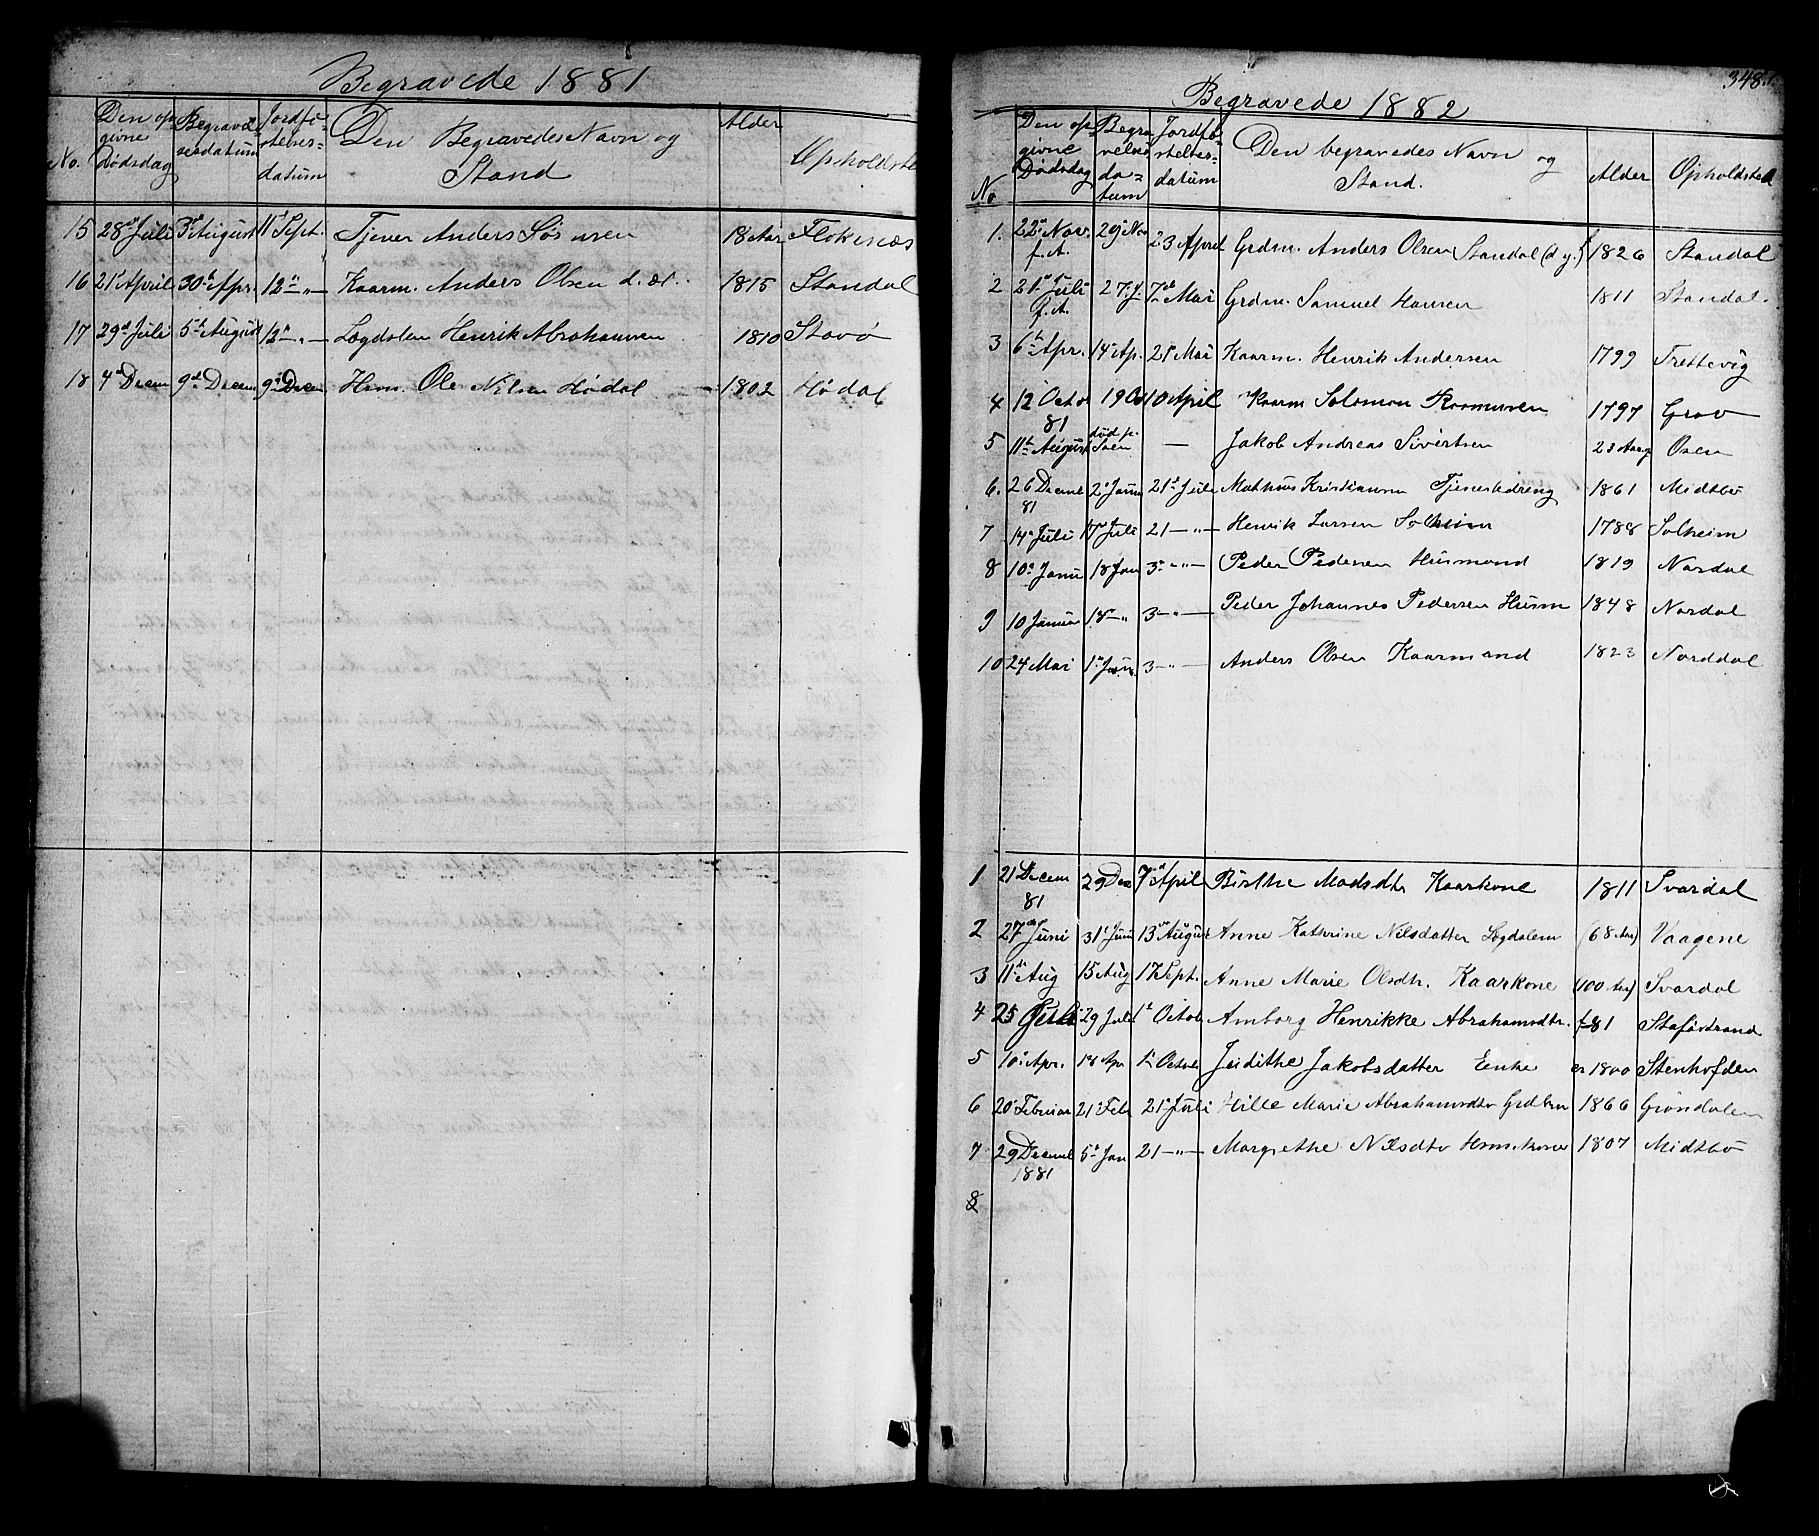 Begravede 1881
No. Den opgivne Dødsdag Begravelsesdatum Jordfæstelsesdatum Den Begravedes Navn og Stand Alder Opholdste
15 28de Juli 3die August 11te Sept. Tjener Anders 18 Aar Flokenæs
16 21de April 30te Apr. 12te -"- Kaarm. Anders Olsen d. æl. 1815 Standal
17 29de Juli 5te August 12te -"- Lægdslem Henrik Abrahamsen 1810 Stavø
18 4de Decem 9de Decem 9de Decem Hsm. Ole Nilsen Hødal 1802 Hødal
348.
Begravede 1882
No Den opgivne Dødsdag Begravelsesdatum Jordfæstelsesdatum Den begravedes Navn og Stand. Alder Opholdsted
1. 22de Nov. f.A. 29de Nov 23 April Grdm. Anders Olsen Standal (d y.) 1826 Standal
2 21de Juli f.A. 27 J. 7de Mai Grdm. Samuel Hansen 1811 Standal.
3 6te Apr. 14de Ap. 21de Mai Kaarm. Henrik Andersen 1799 Trettevig
4 12 Octo 81 19 Oct 10 April Kaarm Solomon Rasmusen 1797 Grov
5 11te August død p. Søen — Jakob Andreas Sivertsen 23 Aar g. Osen
6. 26 Deceml 81 2de Janu 21de Juli Mathias Kristiansen Tjenestedreng 1861 Midtbø
7 14de Juli 17de Juli 21 -"- Henrik Larsen Solheim 1788 Solheim
8 10de Janu 18 Jan 3de -"- Peder Pedersen Husmand 1819 Nordal
9 10 Januar 18 -"- 3 -"- Peder Johannes Pedersen Husm 1848 Nordal
10 24 Mai 1ste Jun. 3 -"- Anders Olsen Kaarmand 1823 Norddal
1 21 Decem 81 29 Dec 7de April Birthe Madsdtr Kaarkone 1811 Svardal
2 27de Juni 31te Juni 13de August Anne Kathrine Nilsdatter Lægdslem (68 Aar) Vaagene
3 11te Aug 15 Aug 17 Sept. Anne Marie Olsdtr. Kaarkone (100 Aar) Svardal
4 25 Juli 29 Juli 1ste Octob Amborg Henrikke Abrahamsdtr. f. 81 Staføstrand
5 10de Apr. 18 Apr 1ste Octob Judithe Jakobsdatter Enke 1800 Stenhofden
6 20de Februar 21de Feb 21de Juli Hille Marie Abrahamsdtr Grdbrn 1866 Grøndalen
7 29 Deceml 1881 5te Jan 21 -"- Margrethe Nilsdtr Hsmskone 1807 Midtbø
8